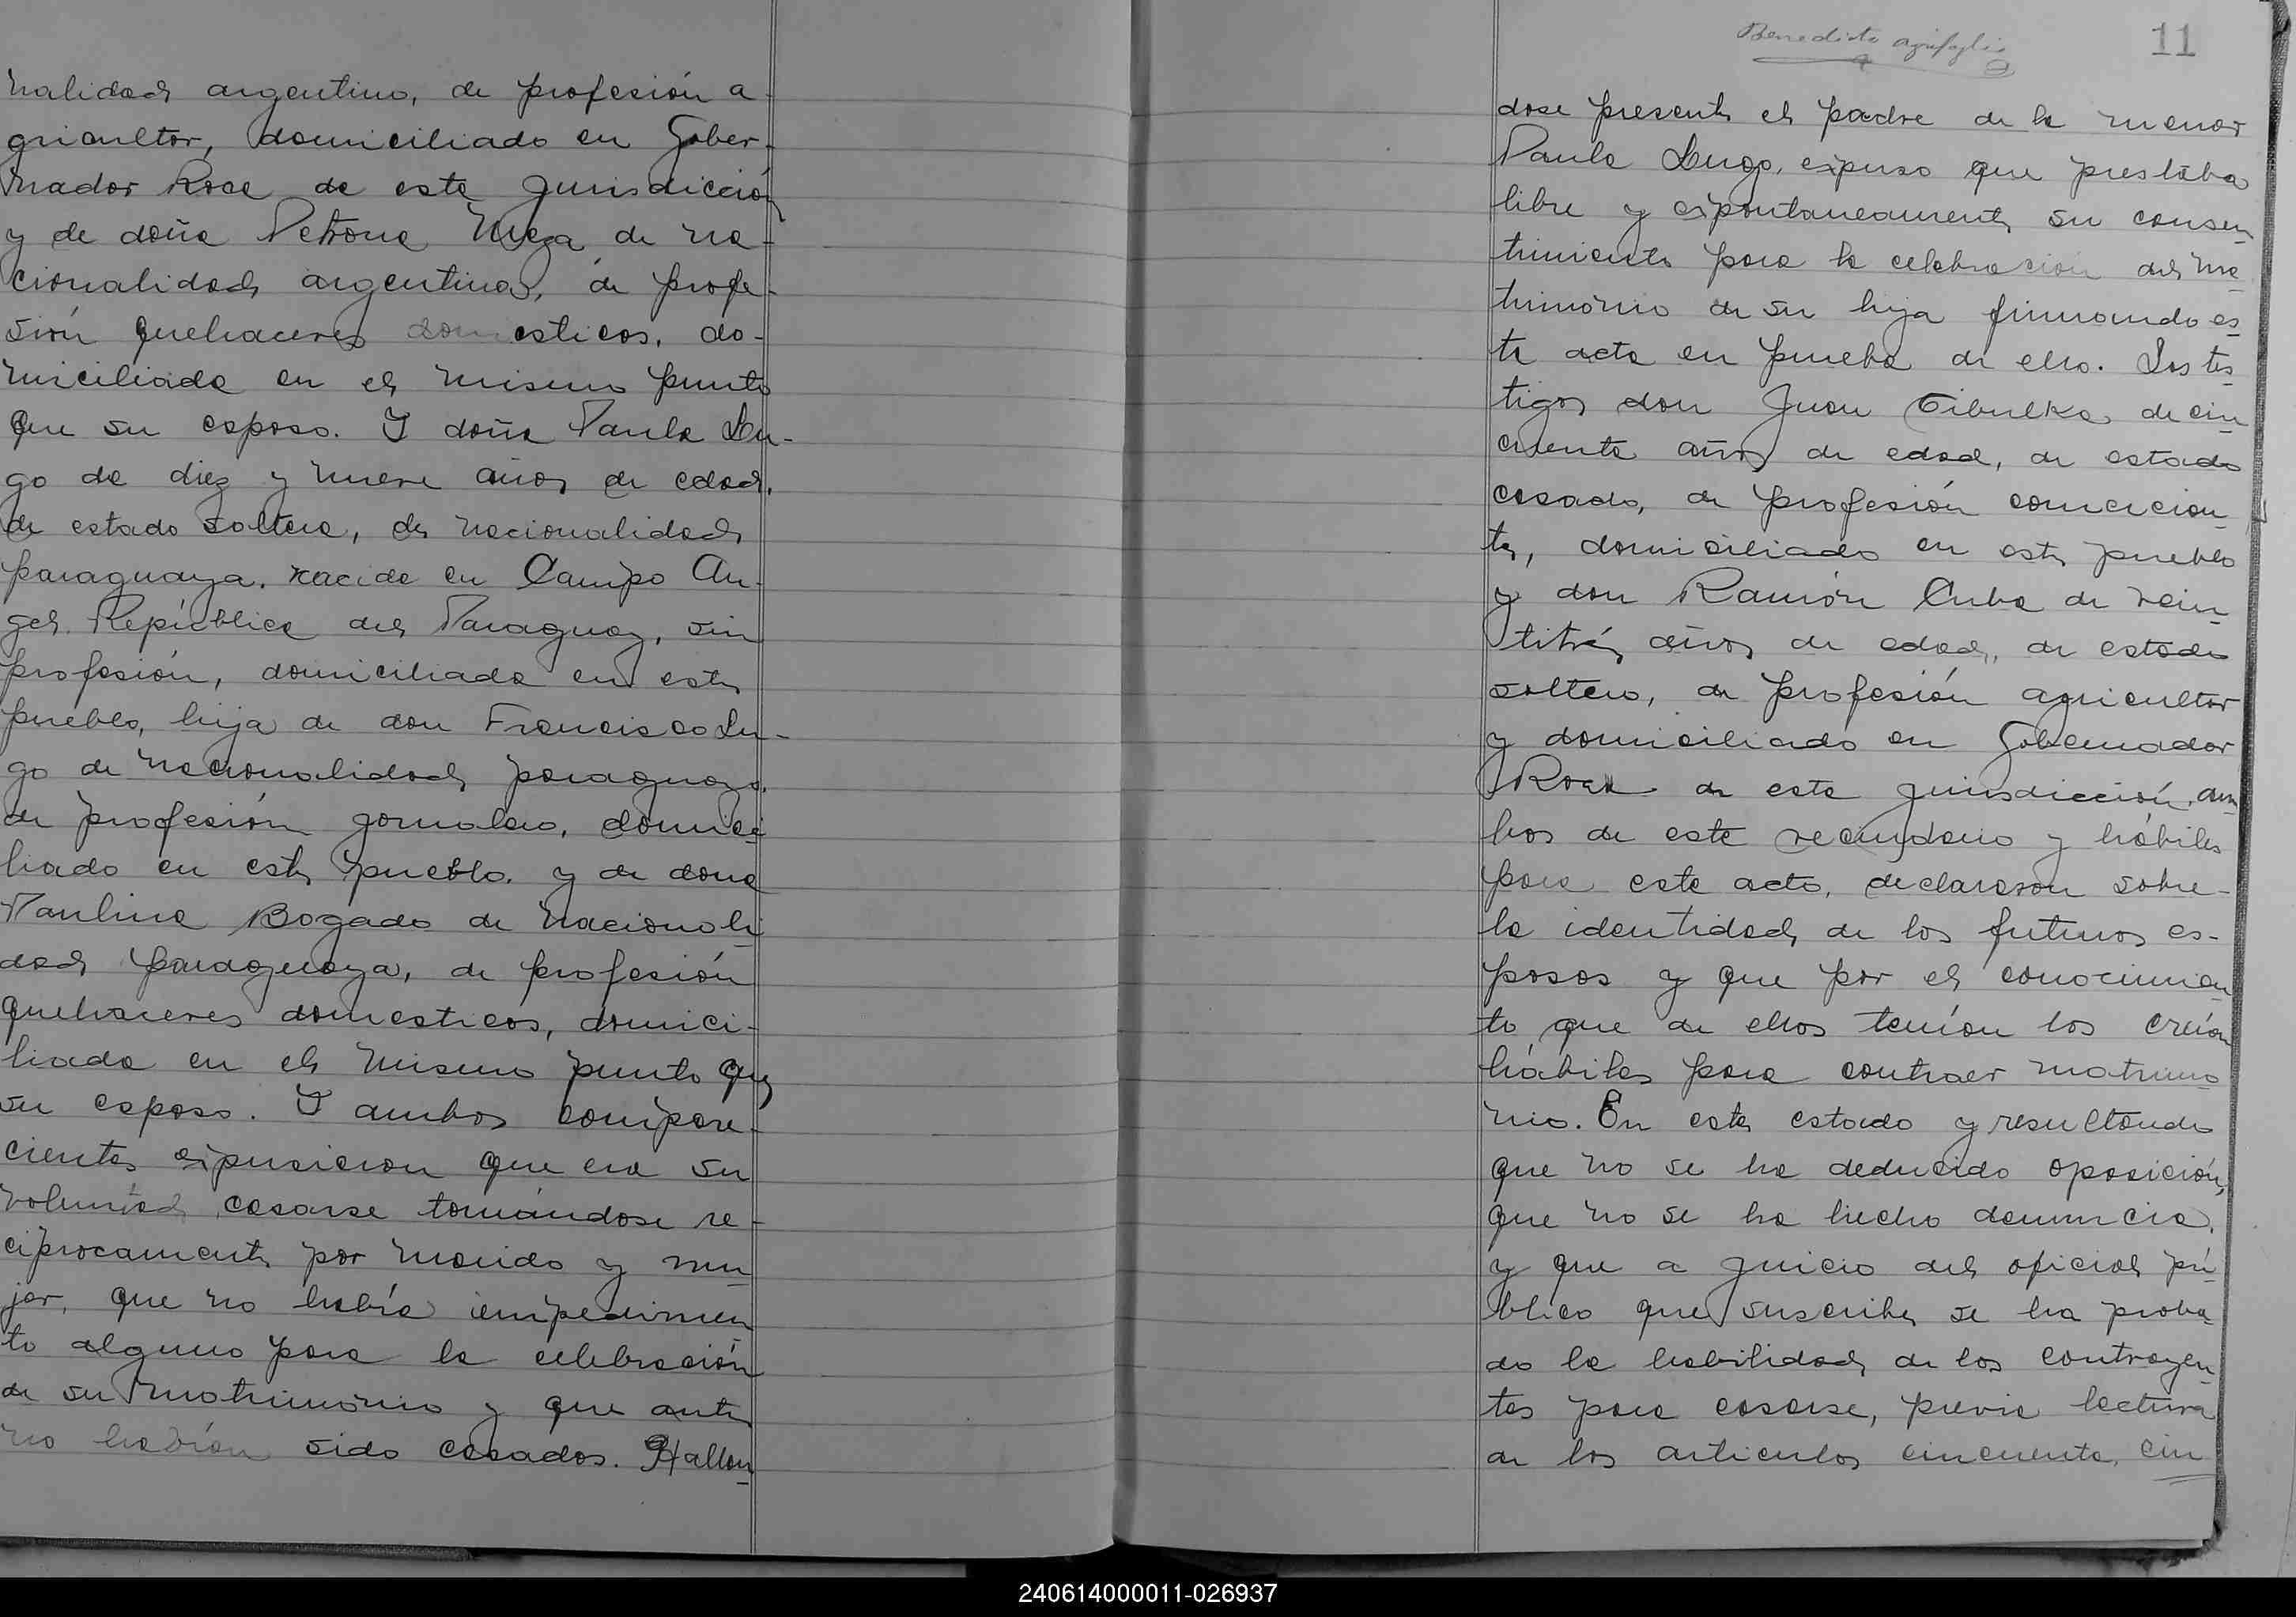 nalidad argentino, de profesión a-
gricultor, domiciliado en Gober-
nador Roca de esta jurisdicción
y de doña Petrona Meza de na-
cionalidad argentina, de profe-
sión quehaceres domesticos, do-
miciliada en el mismo punto
que su esposo. Y doña Paula Lu-
go de diez y nueve años de edad,
de estado soltera, de nacionalidad
paraguaya, nacida en Campo An-
gel República del Paraguay, sin
profesión, domiciliada en este
pueblo, hija de don Francisco Lu-
go de nacionalidad paraguayo,
de profesión jornalero, domici
liado en este pueblo, y de dona
Paulina Bogado de nacionali
dad paraguaya, de profesión
quehaceres domesticos, domici-
liada en el mismo punto que
su esposo. Y ambos compare-
cientes expusieron que era su
voluntad casarse tomándose re-
ciprocamente por marido y mu
jer, que no había impedimen
to alguno para la celebración
de su matrimonio y que antes
no habían sido casados. Hallan
Benedicto
11
dose presente el padre de la menor
Paula Lugo, expuso que prestaba
libre y espontaneamente su consen
timiento para la celebración del ma
trimonio de su hija firmando es
ta acta en prueba de ello. Los tes
tigos don Juan Cibulka de cin
cuenta años de edad, de estado
casado, de profesión comercian
te, domiciliado en este pueblo
y don Ramón Cuba de vein
titrés años de edad, de estado
soltero, de profesión agricultor
y domiciliado en Gobernador
Roca de esta jurisdicción, am
bos de este vecindario y hábiles
para este acto, declararon sobre
la identidad de los futuros es-
posos y que por el conocimien
to que de ellos tenían los creían
hábiles para contraer matrimo
nio. En este estado y resultando
que no se ha deducido oposición,
que no se ha hecho denuncia,
y que a juicio del oficial pú
blico que suscribe se ha proba
do la habilidad de los contrayen
tes para casarse, previa lectura
de los articulos cincuenta, cin
240614000011-026937